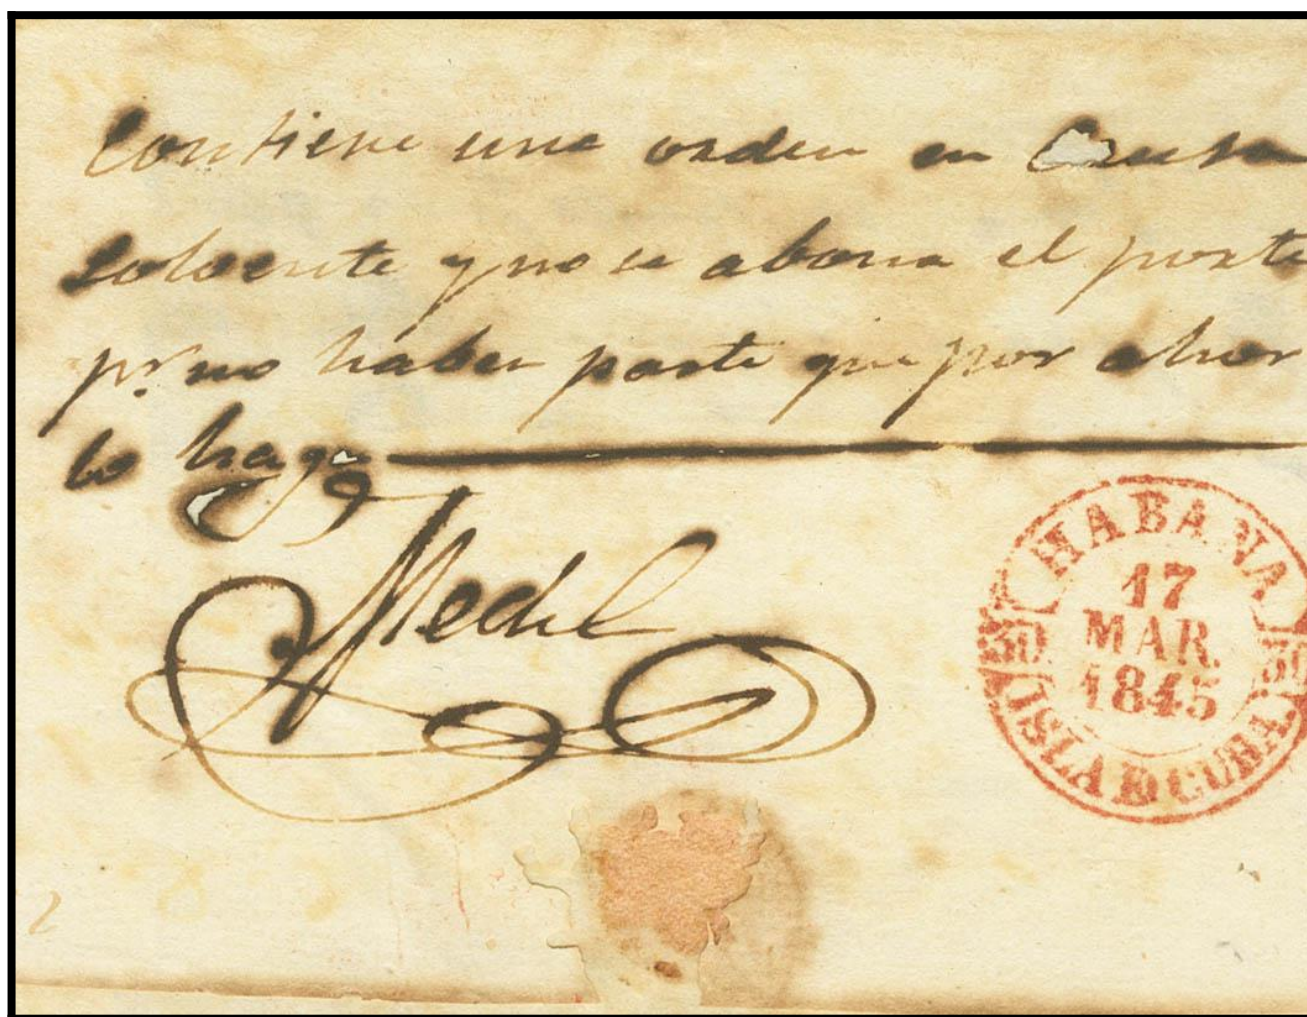 Contiene una orden en Causa
Solvente y no se abona el porte
pr. no haber parte que por ahor
lo haga
Medel
HABANA
17
MAR.
1845
ISLA DE CUBA